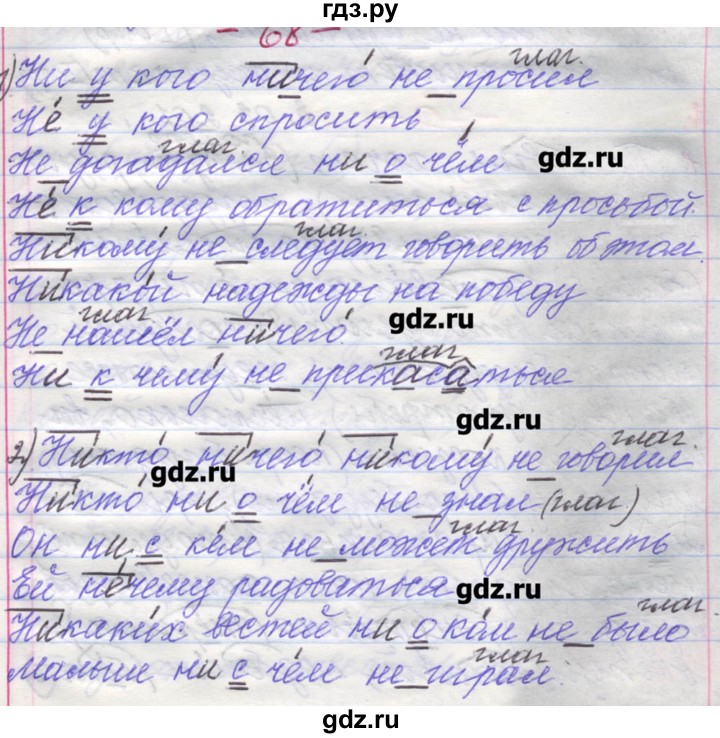 гдз.ру
— 68 —
глаг.
1) Ни у кого ничего не просил
Не у кого спросить
глаг.
Не догадался ни о чём
gdz.ru
Не к кому обратиться с просьбой.
глаг.
Никому не следует говорить об этом.
Никакой надежды на победу
глаг
gdz.ru
Не нашёл ничего.
глаг.
Ни к чему не прикасаться
gdz.ru
глаг.
2) Никто ничего никому не говорил
gdz.ru
Никто ни о чём не знал (глаг.)
глаг.
Он ни с кем не может дружить
Ей нечему радоваться
gdz.ru
глаг
Никаких вестей ни о ком не было
глаг.
Малыш ни с чем не играл.
gdz.ru